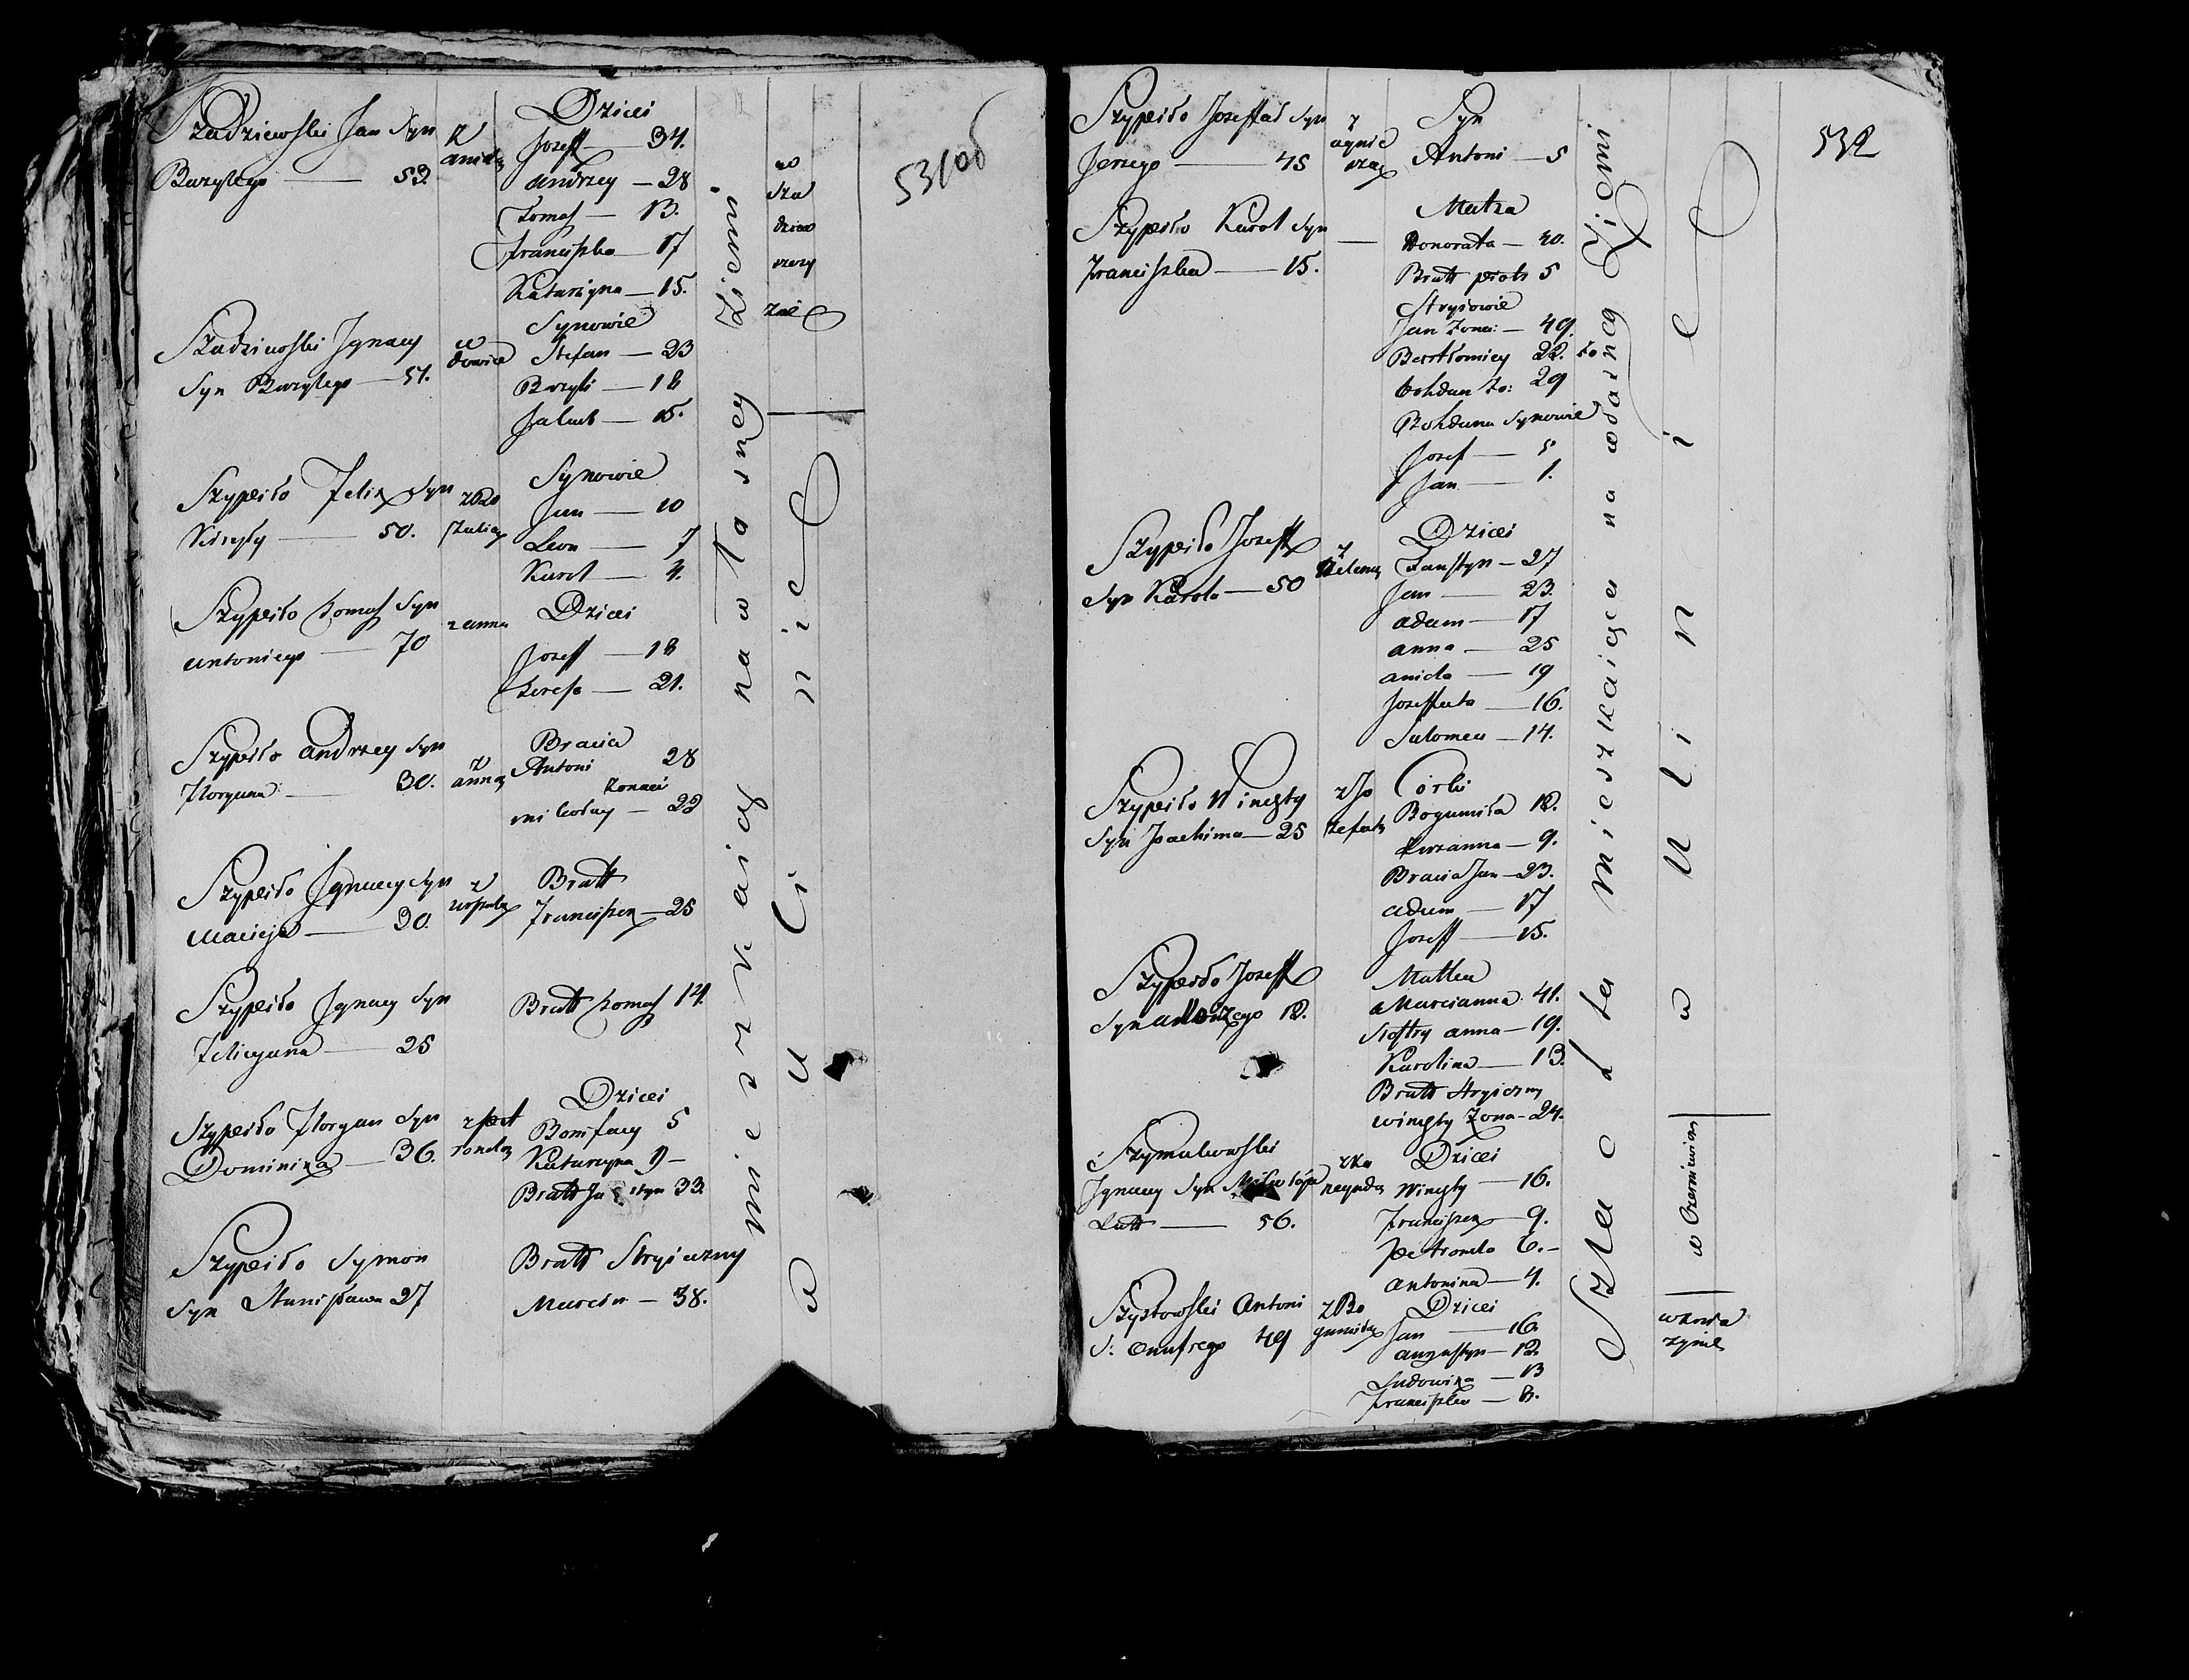 Szadziewski Jan Syn
Bazylego — 53.
z
anielą
Dzieci
Jozeff — 34.
andrzey — 28
Tomasz — 13.
Franciszka — 17
Katarzyna — 15.
Szadziewski Jgnacy
Syn Bazylego — 57.
w
dowiec
Synowie
Stefan — 23
Bazyli — 18
Jakub — 15.
Szypiłło Felix Syn
Kiryły — 50.
Synowie
Jan — 10
Leon — 7
Karol — 4.
Szypiłło Tomasz Syn
antoniego — 70
z anną
Dzieci
Jozeff — 18
Teresa — 21.
Szypiłło andrzey Syn
Floryana — 30.
z
anną
Bracia
Antoni 28
mikołay — 22
Szypiłło Jgnacy Syn
Macieja — 30.
z
urszulą
Bratt
Franciszek — 25
Szypiłło Jgnacy Syn
Felicyana — 25
Bratt Tomasz 14.
Szypiłło Floryan Syn
Dominika — 36.
z pet
ronelą
Dzieci
Bonifacy 5
Katarzyna 9 —
Bratt Ju styn 33.
Szypiłło Symon
Syn Stanisława 27
Bratt Stryieczny
Marcin — 38.
mieszkaią na własney Ziemi
w
Sza
dziew
szczy
znie
w Ulinie
531об
Szypiłło Jozeffat Syn
Jerzego — 45
z
agnie
szką
Syn
Antoni — 5
Szypiłło Karol Syn
Franciszka — 15.
—
Matka
Honorata — 40.
Bratt piotr 5
Stryiowie
Jan Żona: — 49.
Bartłomiey 22. żo
Bohdan żo: 29
Bohdana Synowie
Jozef — 5
Jan — 1.
Szypiłło Jozeff
Syn Karola — 50
z
Heleną
Dzieci
Faustyn — 27
Jan — 23.
adam — 17
anna — 25
aniela — 19
Jozeffata — 16.
Salomea — 14.
Szypiłło Wincęty
Syn Joachima — 25
z Jo
zefatą
Corki
Bogumiła 12.
Zuzanna — 9.
Bracia Jan — 23.
adam — 17
Jozeff — 15.
Szypiłło Jozeff
Matka
Marcianna 41.
Siostry anna — 19.
Karolina — 13.
Bratt Stryieczny
wincęty Żona — 24.
Szymakowski
Jgnacy Syn
56.
z Ku
negundą
Dzieci
Wincęty — 16.
Franciszek — 9.
petronela 6. —
antonina — 4.
Szystowski Antoni
S: onufrego 49
z Bo
gumiłą
Dzieci
Jan — 16.
augustyn — 12.
Ludowika — 13
Franciszka — 8.
Szlachta mieszkaiąca na własney Ziemi
w Ulinie
532